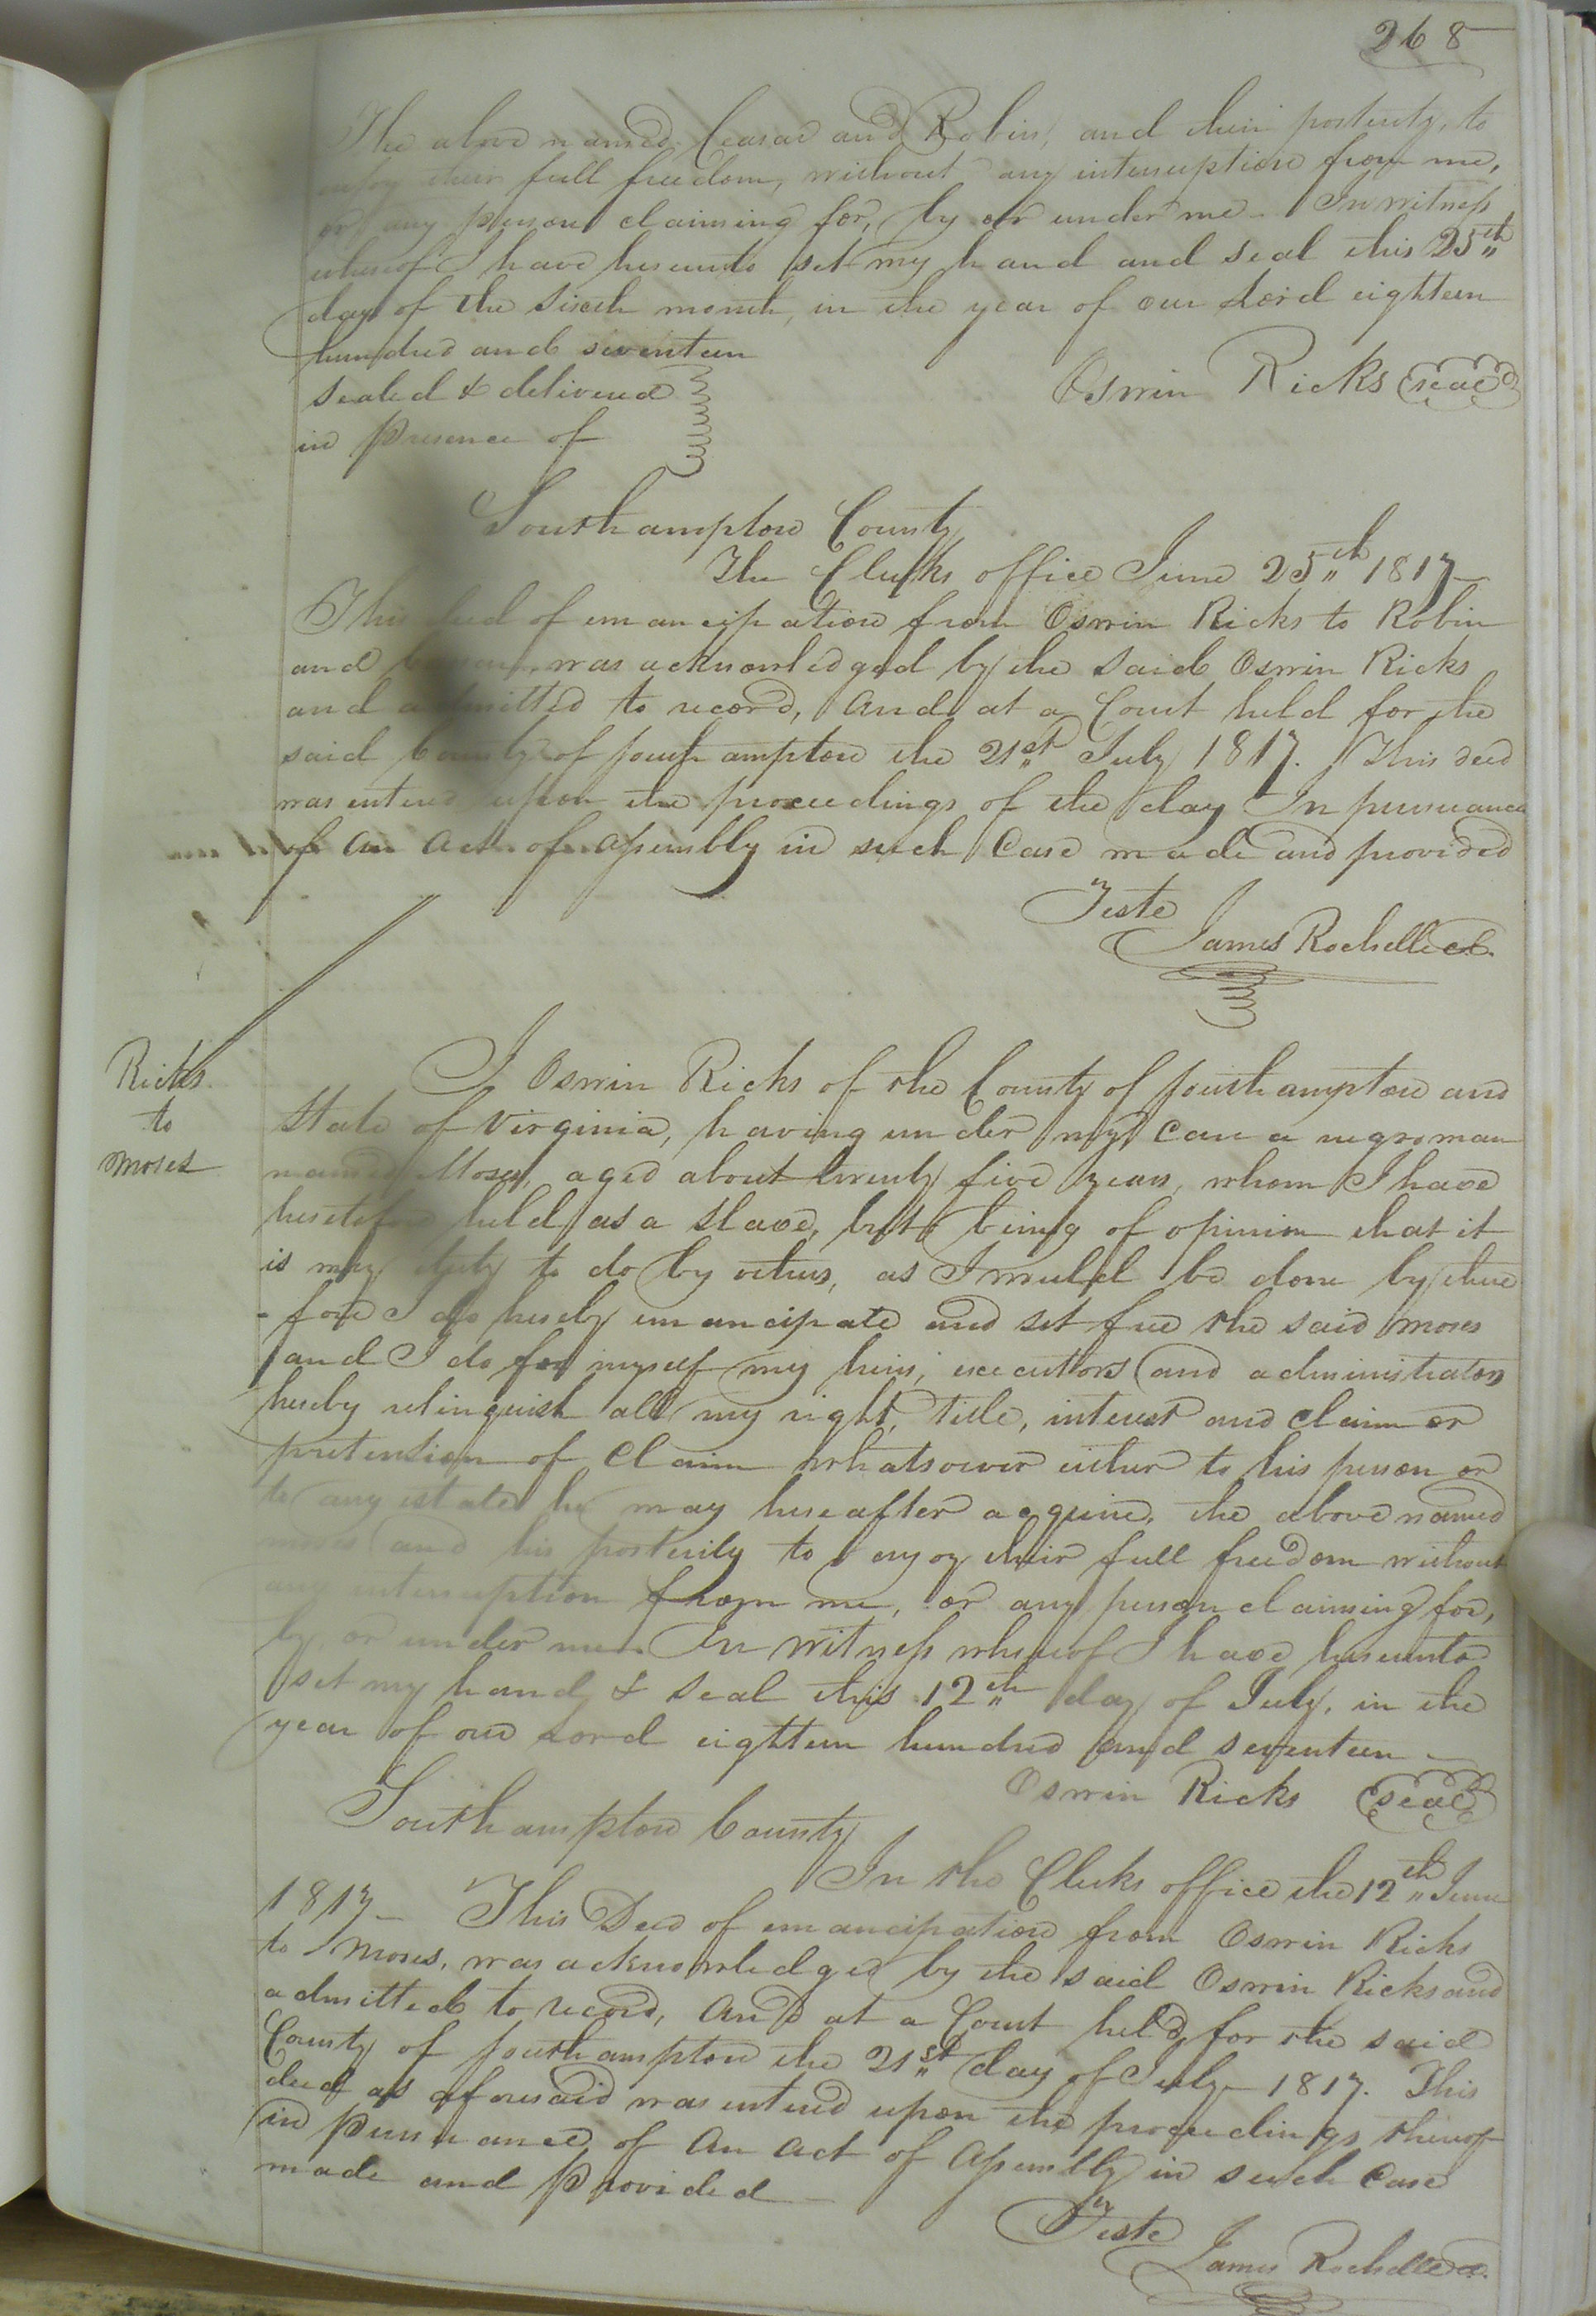 268
The above named Ceasar and Robin, and their posterity, to
enjoy their full freedom, without any interruption from me,
or any person claiming for, by or under me. In witness
whereof I have hereunto set my hand and seal this 25th
day of the Sixth month, in the year of our Lord eighteen
hundred and seventeen
Oswin Ricks seal
Sealed & delivered
in presence of
Southampton County
The Clerks office June 25th 1817
This deed of emancipation from Oswin Ricks to Robin
and was acknowledged by the said Oswin Ricks
and admitted to record, And at a Court held for the
said County of Southampton the 21st July 1817. This deed
was entered upon the proceedings of the day In pursuance
of An Act of Assembly in such Case made and provided
Teste
James Rochelle cl.
Ricks
to
Moses
I Oswin Ricks of the County of Southampton and
State of Virginia, having under my Care a negro man
named Moses, aged about twenty five years, whom I have
heretofore held as a Slave, but being of opinion that it
is my duty to do by others, as I would be done by there
-fore I do hereby emancipate and set free the said Moses
and I do for myself my heirs, executors and administrators
hereby relinquish all my right, title, interest and claim or
pretension of Claim whatsoever either to his person or
to any estate he may hereafter acquire, the above named
Moses and his posterity to enjoy their full freedom without
any interruption from me, or any person claiming for,
by, or under me. In Witness whereof I have hereunto
set my hand & Seal this 12th day of July, in the
year of our Lord eighteen hundred and seventeen
Oswin Ricks seal
Southampton County
In the Clerks office the 12th June
1817 - This Deed of emancipation from Oswin Ricks
to Moses, was acknowledged by the said Oswin Ricks and
admitted to record, And at a Court held for the said
County of Southampton the 21st day of July 1817. This
deed as aforesaid was entered upon the proceedings thereof
in pursuance of An Act of Assembly in such Case
made and Provided
Teste
James Rochelle cl.